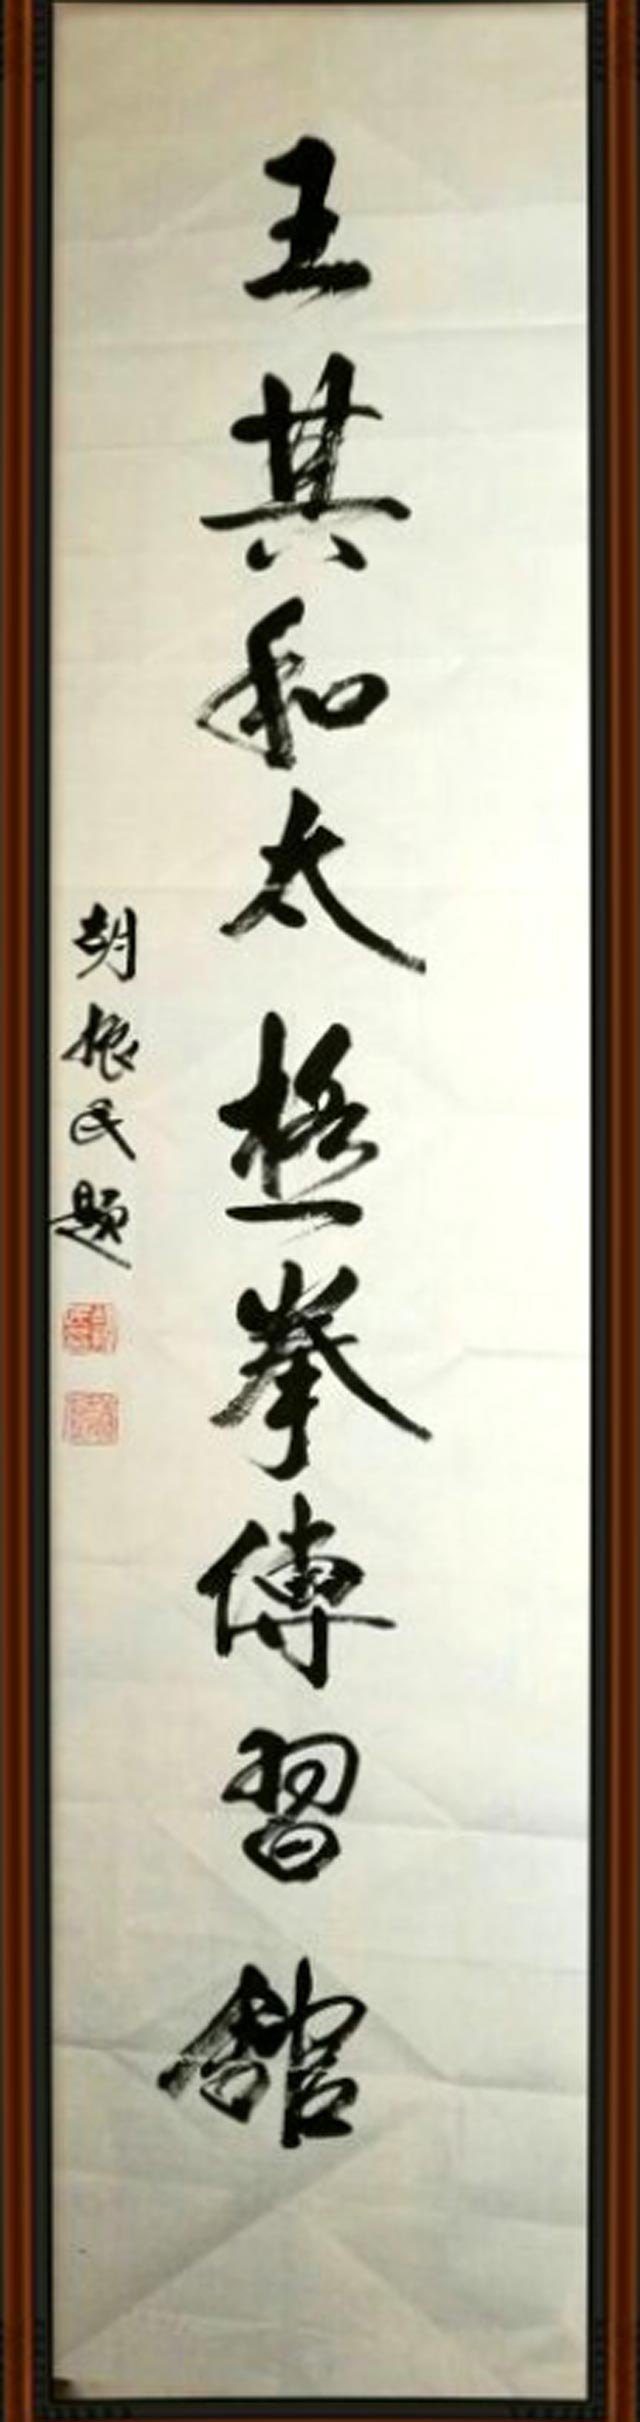 王其和太極拳傳習館
胡振民题